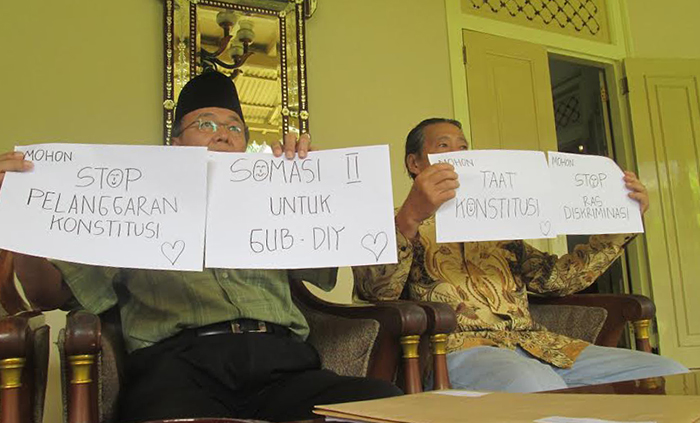 MOHON
STOP
PELANGGARAN
KONSTITUSI
SOMASI II
UNTUK
GUB-DIY
MOHON
TAAT
KONSTITUSI
MOHON
STOP
RAS
DISKRIMINASI